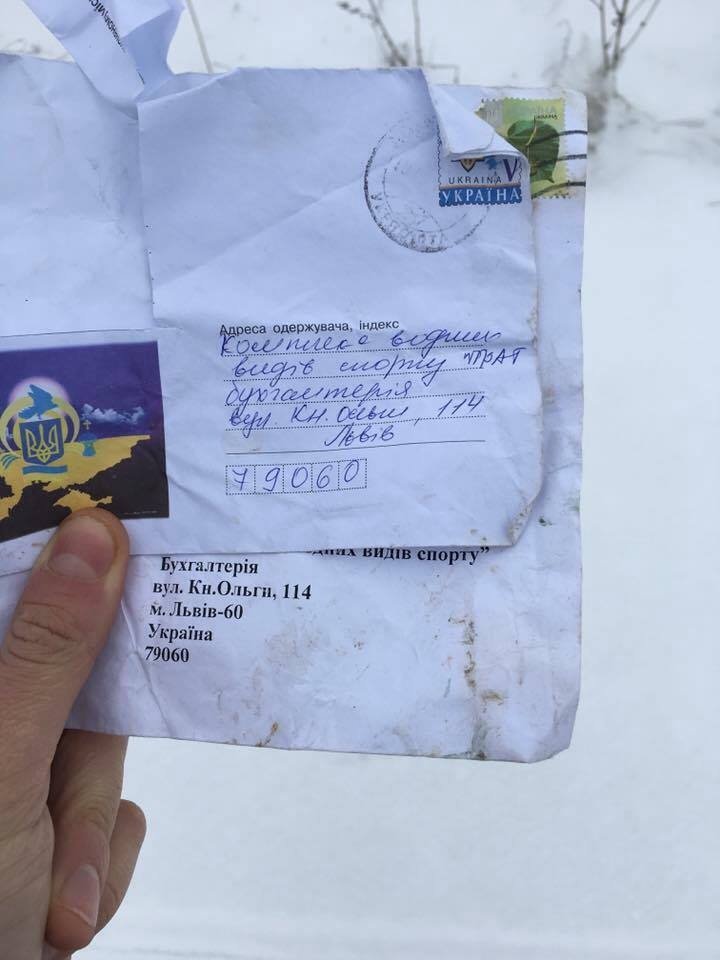 UKRAINA V
УКРАЇНА
Адреса одержувача, індекс
Комплекс водних
видів спорту ПрАТ
бухгалтерія
вул. Кн. Ольги, 114
Львів
79060
видів спорту”
Бухгалтерія
вул. Кн.Ольги, 114
м. Львів-60
Україна
79060